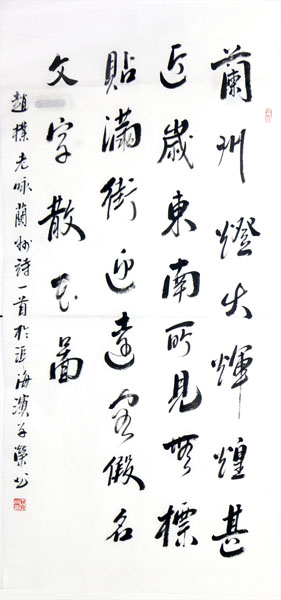 蘭州燈火輝煌甚
近歲東南所見無標
貼滿街迎遠客假名
文字散花圖
趙樸老咏蘭州詩一首於海濱榮書